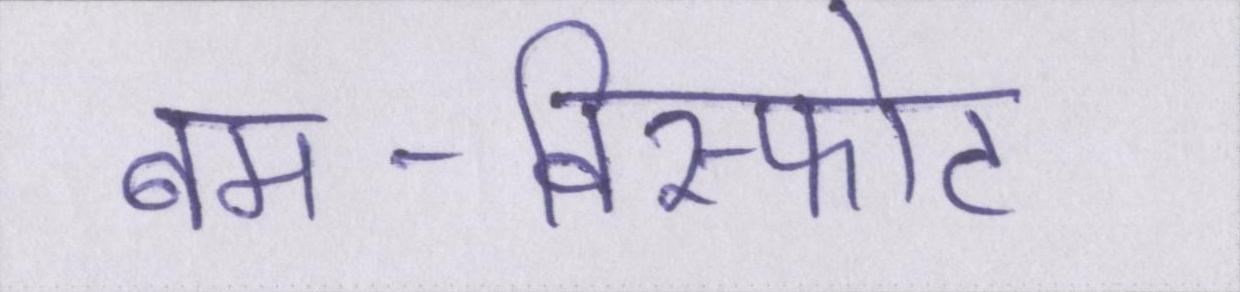 बम-विस्फोट